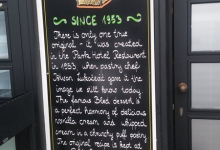 SINCE 1953
There is only one true
original - it was created
in the Park Hotel Restaurant
in 1953 when pastry chef
Ištvan Lukačević gave it the
image we still know today.
This famous Bled dessert is
a perfect harmony of delicious
vanilla cream and whipped
cream in a crunchy puff pastry.
The original recipe is kept as